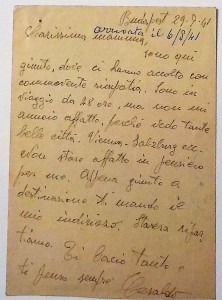 Budapest 29-7-41
arrivata il 6/8/41
Carissima mamma,
sono qui
giunto, dove ci hanno accolto con
commovente simpatia. Sono in
viaggio da 48 ore, ma non mi
annoio affatto, perché vedo tante
belle città. Vienna-Salzburg ecc.
Non stare affatto in pensiero
per me. Appena giunto a
destinazione ti mando il
mio indirizzo. Stasera ripar
tiamo. Ti bacio tanto,
ti penso sempre